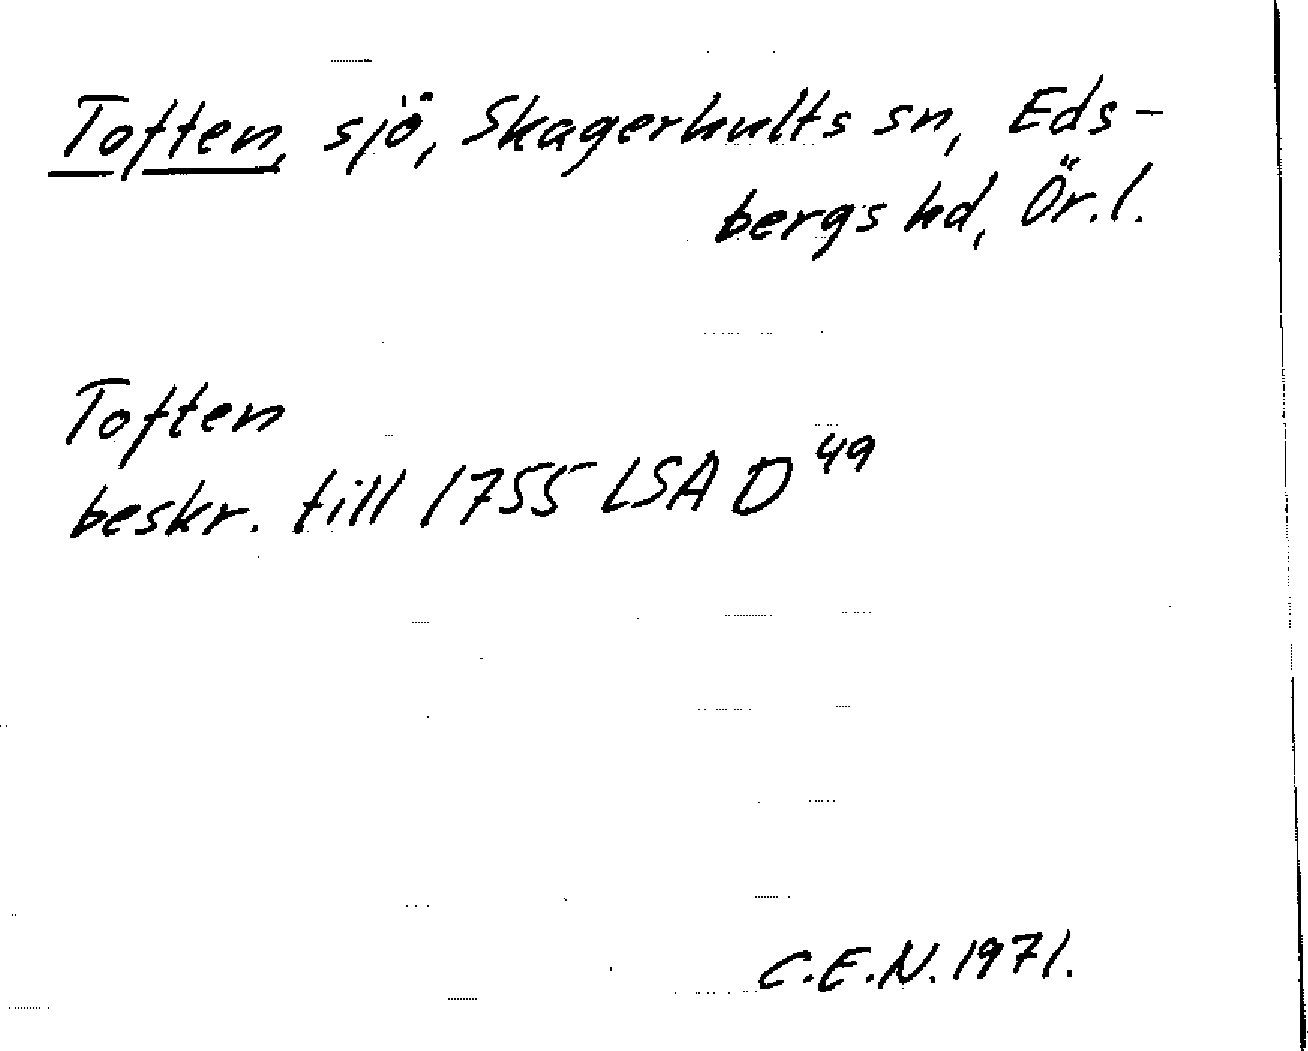 Toften, sjö, Skagerhults sn, Eds-
bergs hd, Ör.l.
Toften
beskr. till 1755 LSA D⁴⁹
C.E.N. 1971.